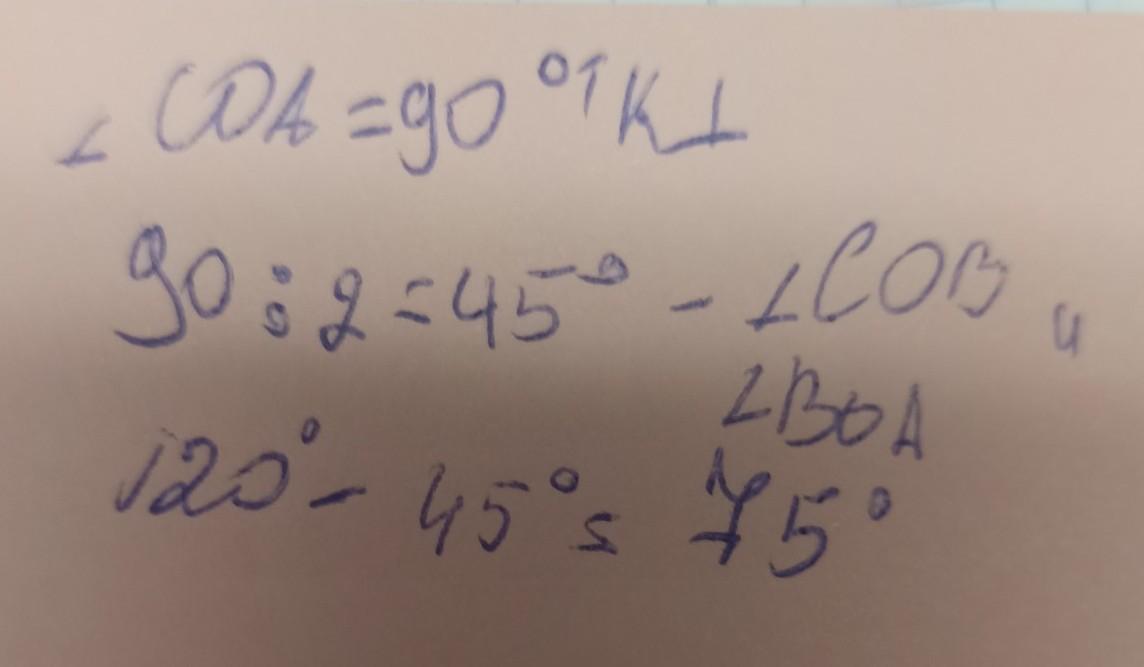 ∠COA=90° тк ⊥
90:2=45° - ∠COB и
∠BOA
120° - 45° = 75°